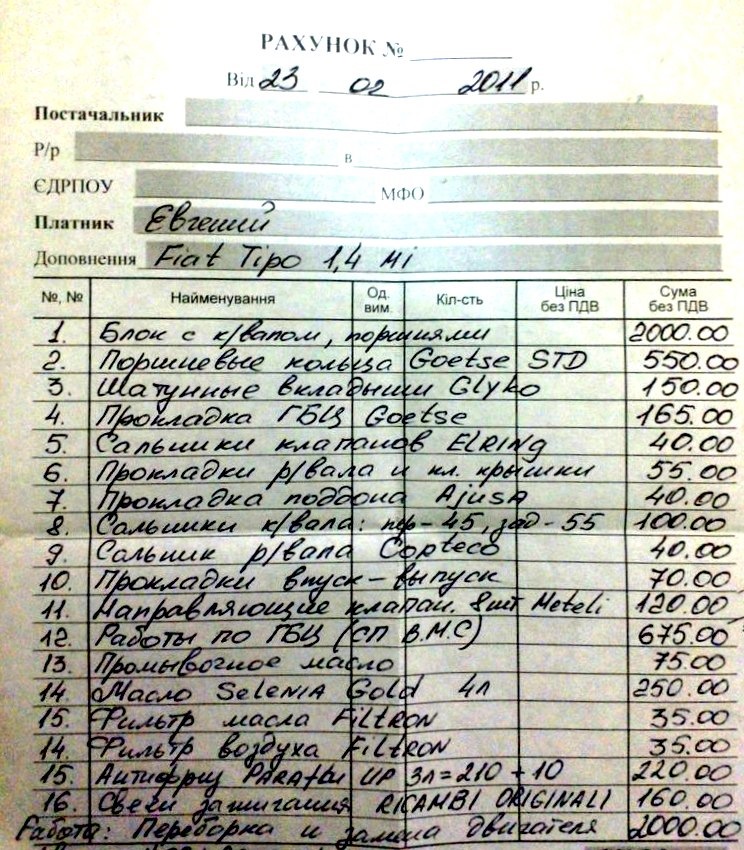 РАХУНОК №
Від 23 02 2011 р.
Постачальник
Р/р в
ЄДРПОУ МФО
Платник Евгений
Доповнення Fiat Tipo 1,4 мі
№, № Найменування Од. вим. Кіл-сть Ціна без ПДВ Сума без ПДВ
1. Блок с к/валом, поршнями 2000.00
2. Поршневые кольца Goetse STD 550.00
3. Шатунные вкладыши Glyko 150.00
4. Прокладка ГБЦ Goetse 165.00
5. Сальники клапанов ELRING 40.00
6. Прокладки р/вала и кл. крышки 55.00
7. Прокладка поддона AjusA 40.00
8. Сальники к/вала: пер-45, зад-55 100.00
9. Сальник р/вала Corteco 40.00
10. Прокладки впуск-выпуск 70.00
11. Направляющие клапан. 8шт Meteli 120.00
12. Работы по ГБЦ (СП В.М.С) 675.00
13. Промывочное масло 75.00
14. Масло SELENIA Gold 4л 250.00
15. Фильтр масла FiLtRON 35.00
14. Фильтр воздуха FiLtRON 35.00
15. Антифриз PARAflu UP 3л=210+10 220.00
16. Свечи зажигания RICAMBI ORIGINALI 160.00
Работа: Переборка и замена двигателя 2000.00